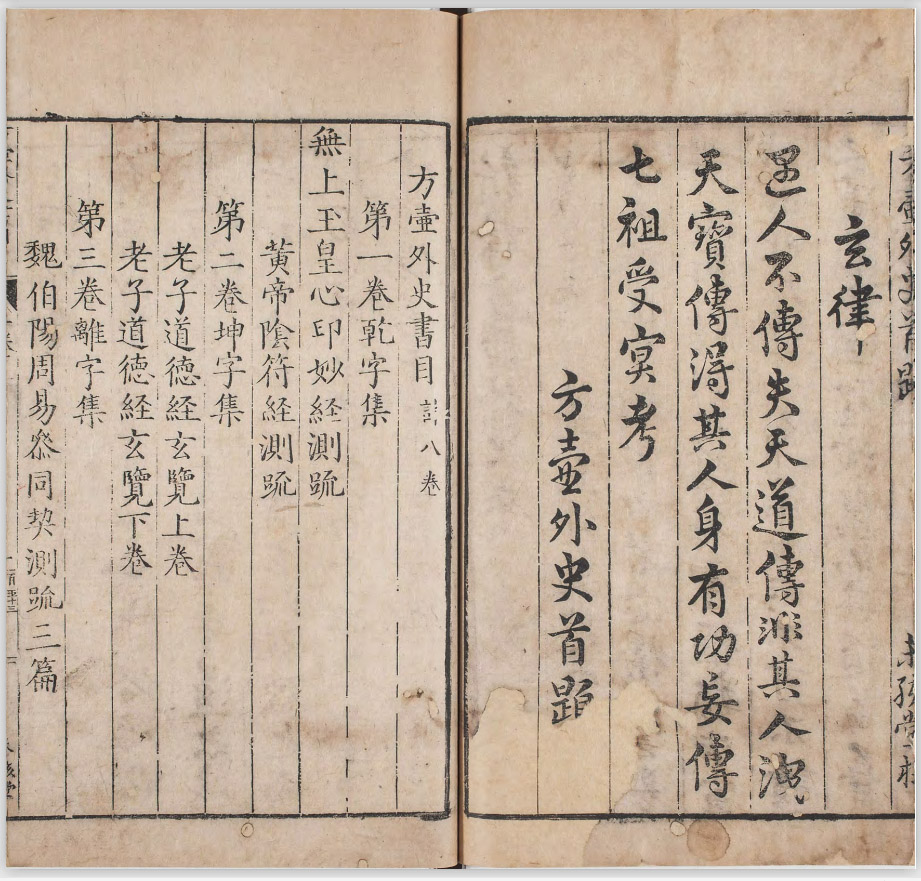 玄律
遇人不傳失天道傳非其人洩
天寶傳得其人身有功妄傳
七祖受冥考
方壷外史首題
方壷外史書目 計八卷
第一卷乾字集
無上玉皇心印妙経測疏
黃帝陰符経測疏
第二卷坤字集
老子道德経玄覽上卷
老子道德経玄覽下卷
第三卷離字集
魏伯陽周易叅同契測疏三篇